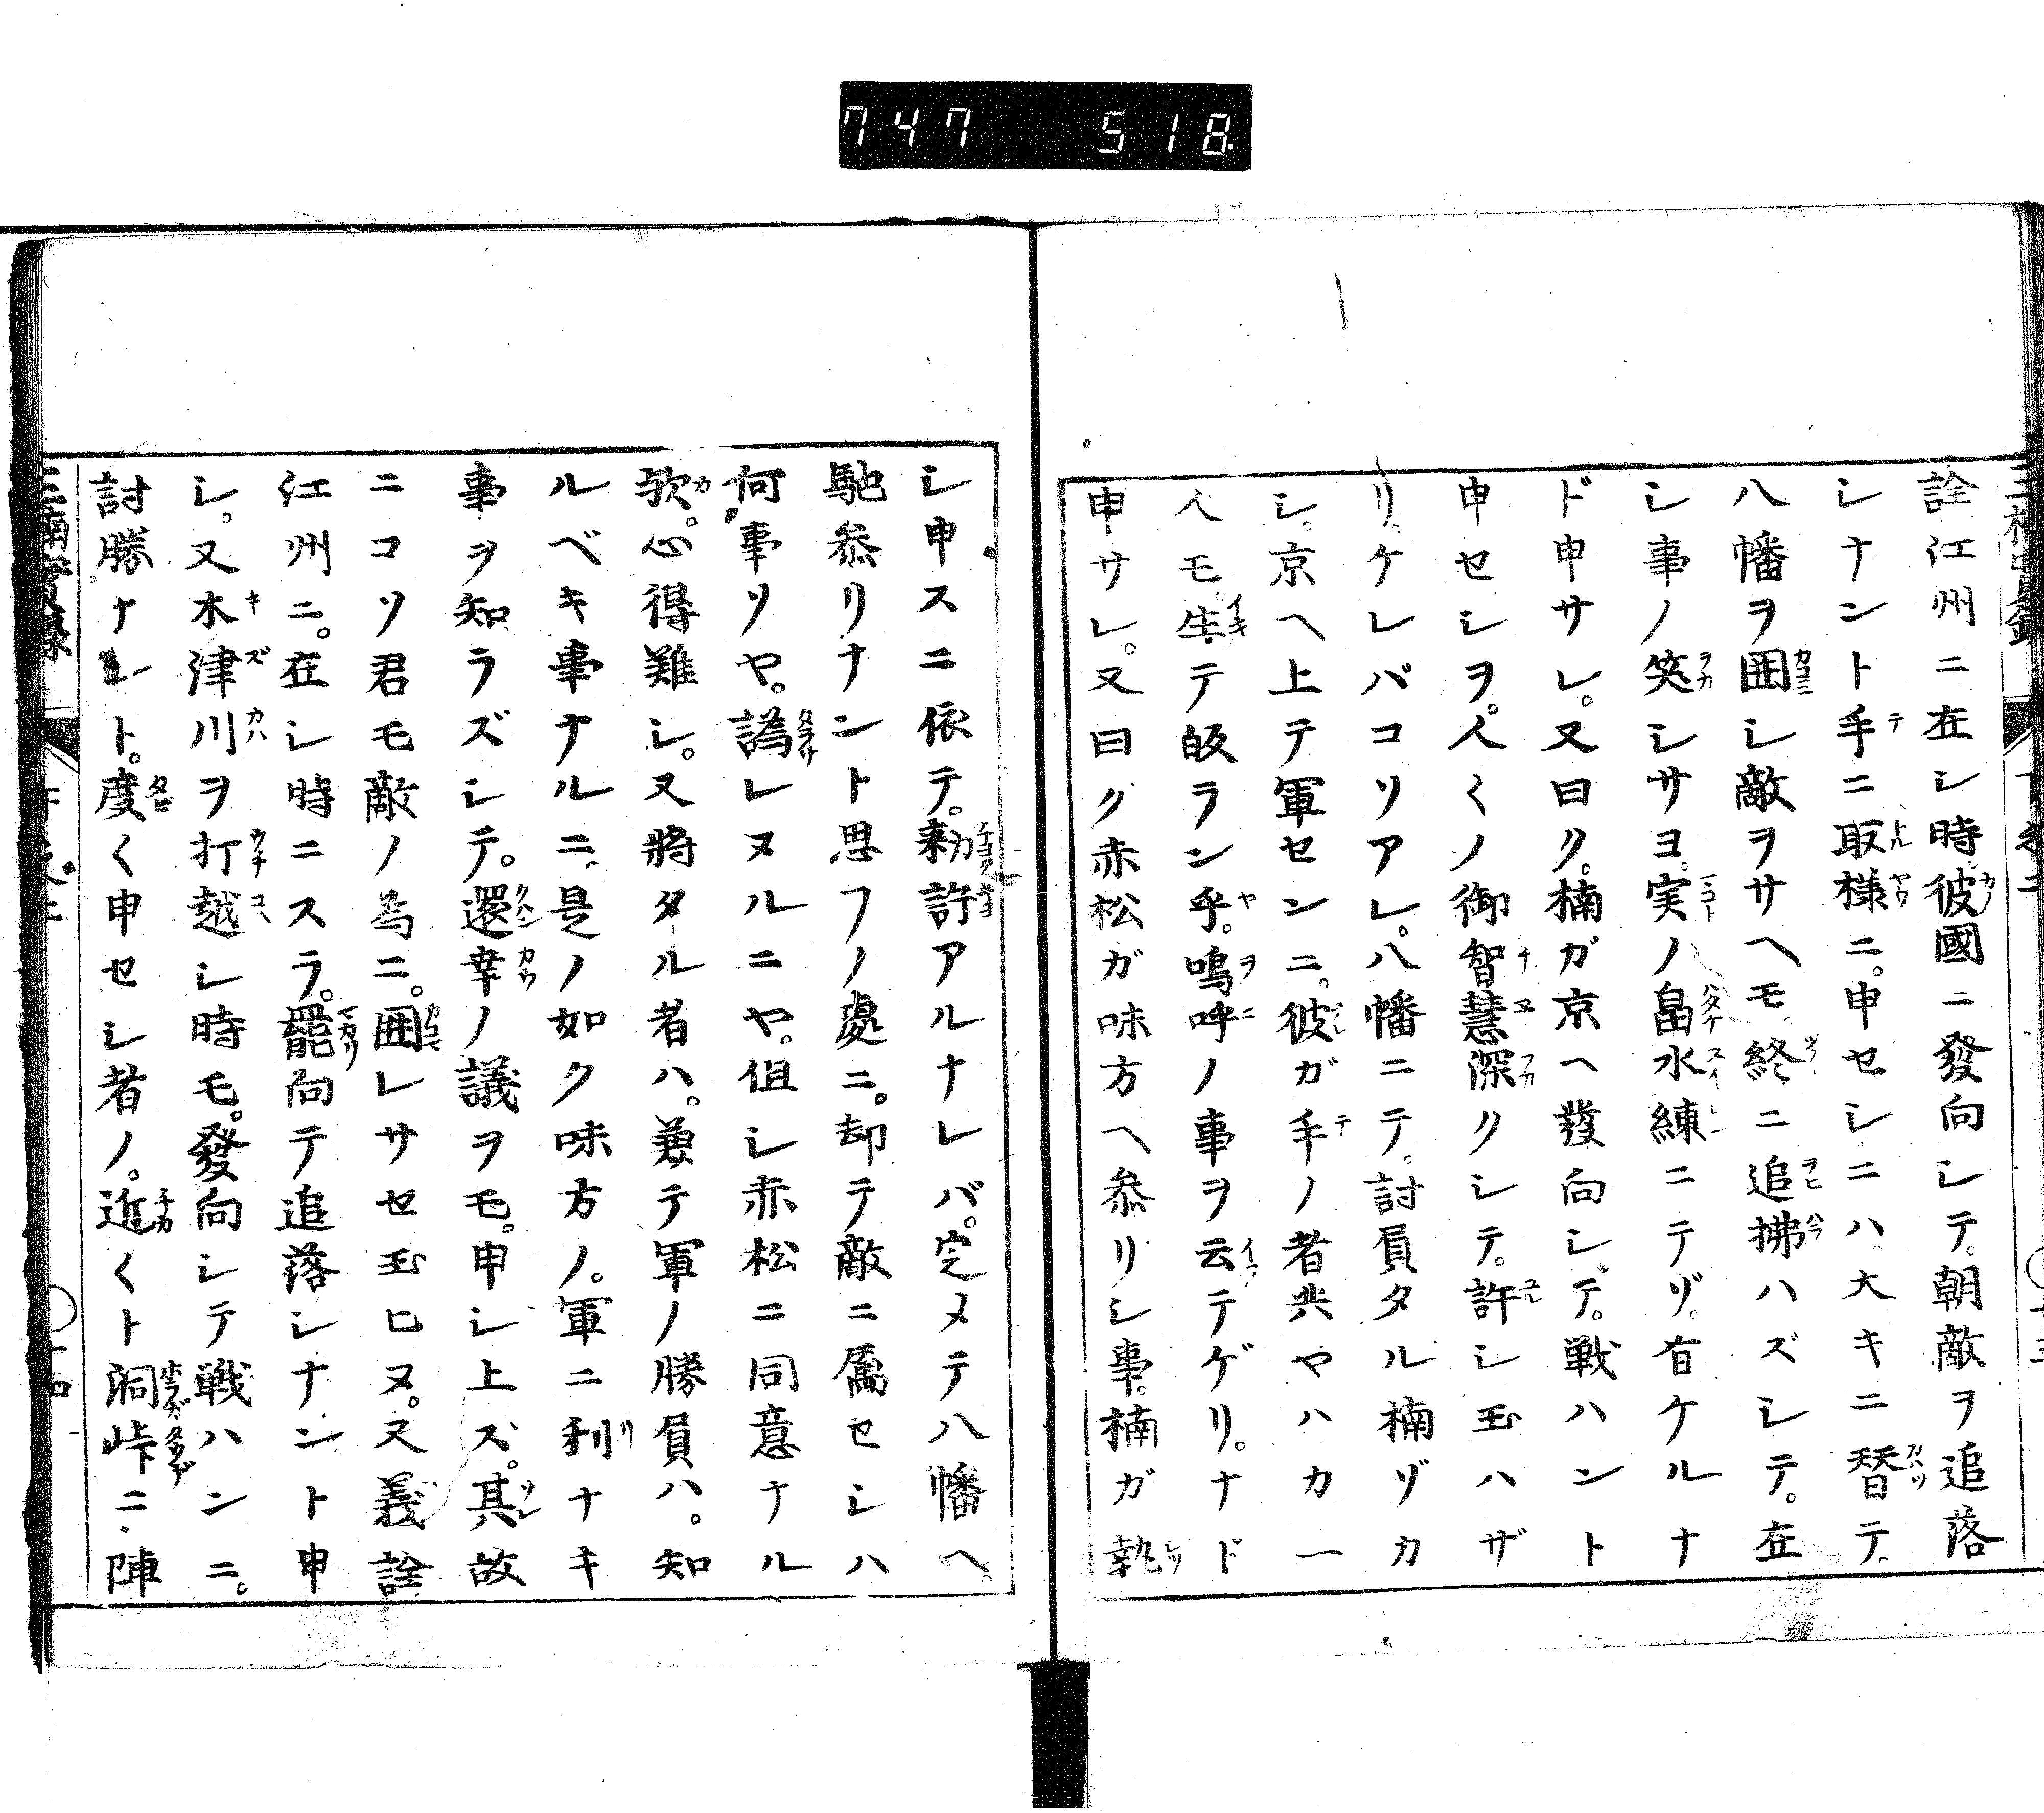 747 518
詮江州ニ在シ時彼國ニ發向シテ。朝敵ヲ追落
シナント手ニ取様ニ。申セシニハ大キニ替テ。
八幡ヲ囲シ敵ヲサヘモ。終ニ追拂ハズシテ。在
シ事ノ笑シサヨ。実ノ畠水練ニテゾ。有ケルナ
ド申サレ。又曰ク。楠ガ京ヘ發向シテ。戦ハント
申セシヲ。人〱ノ御智慧深クシテ。許シ玉ハザ
リ。ケレバコソアレ。八幡ニテ。討負タル楠ゾカ
シ。京ヘ上テ軍センニ。彼ガ手ノ者共ヤハカ一
人モ生テ皈ラン乎。嗚呼ノ事ヲ云テゲリ。ナド
申サレ。又曰ク赤松ガ味方ヘ叅リシ事。楠ガ執
シ申スニ依テ。勅許アルナレバ。定メテ八幡ヘ。
馳叅リナント思フノ處ニ。却テ敵ニ属セシハ
何事ソヤ。譌レヌルニヤ。但シ赤松ニ同意ナル
欤。心得難シ。又將タル者ハ。兼テ軍ノ勝負ハ。知
ルベキ事ナルニ。是ノ如ク味方ノ。軍ニ利ナキ
事ヲ知ラズシテ。還幸ノ議ヲモ。申シ上ズ。其故
ニコソ君モ敵ノ為ニ。囲レサセ玉ヒヌ。又義詮
江州ニ。在シ時ニスラ。罷向テ追落シナント申
シ。又木津川ヲ打越シ時モ。發向シテ戦ハンニ。
討勝ナレト。度〱申セシ者ノ。近〱ト洞峠ニ陣